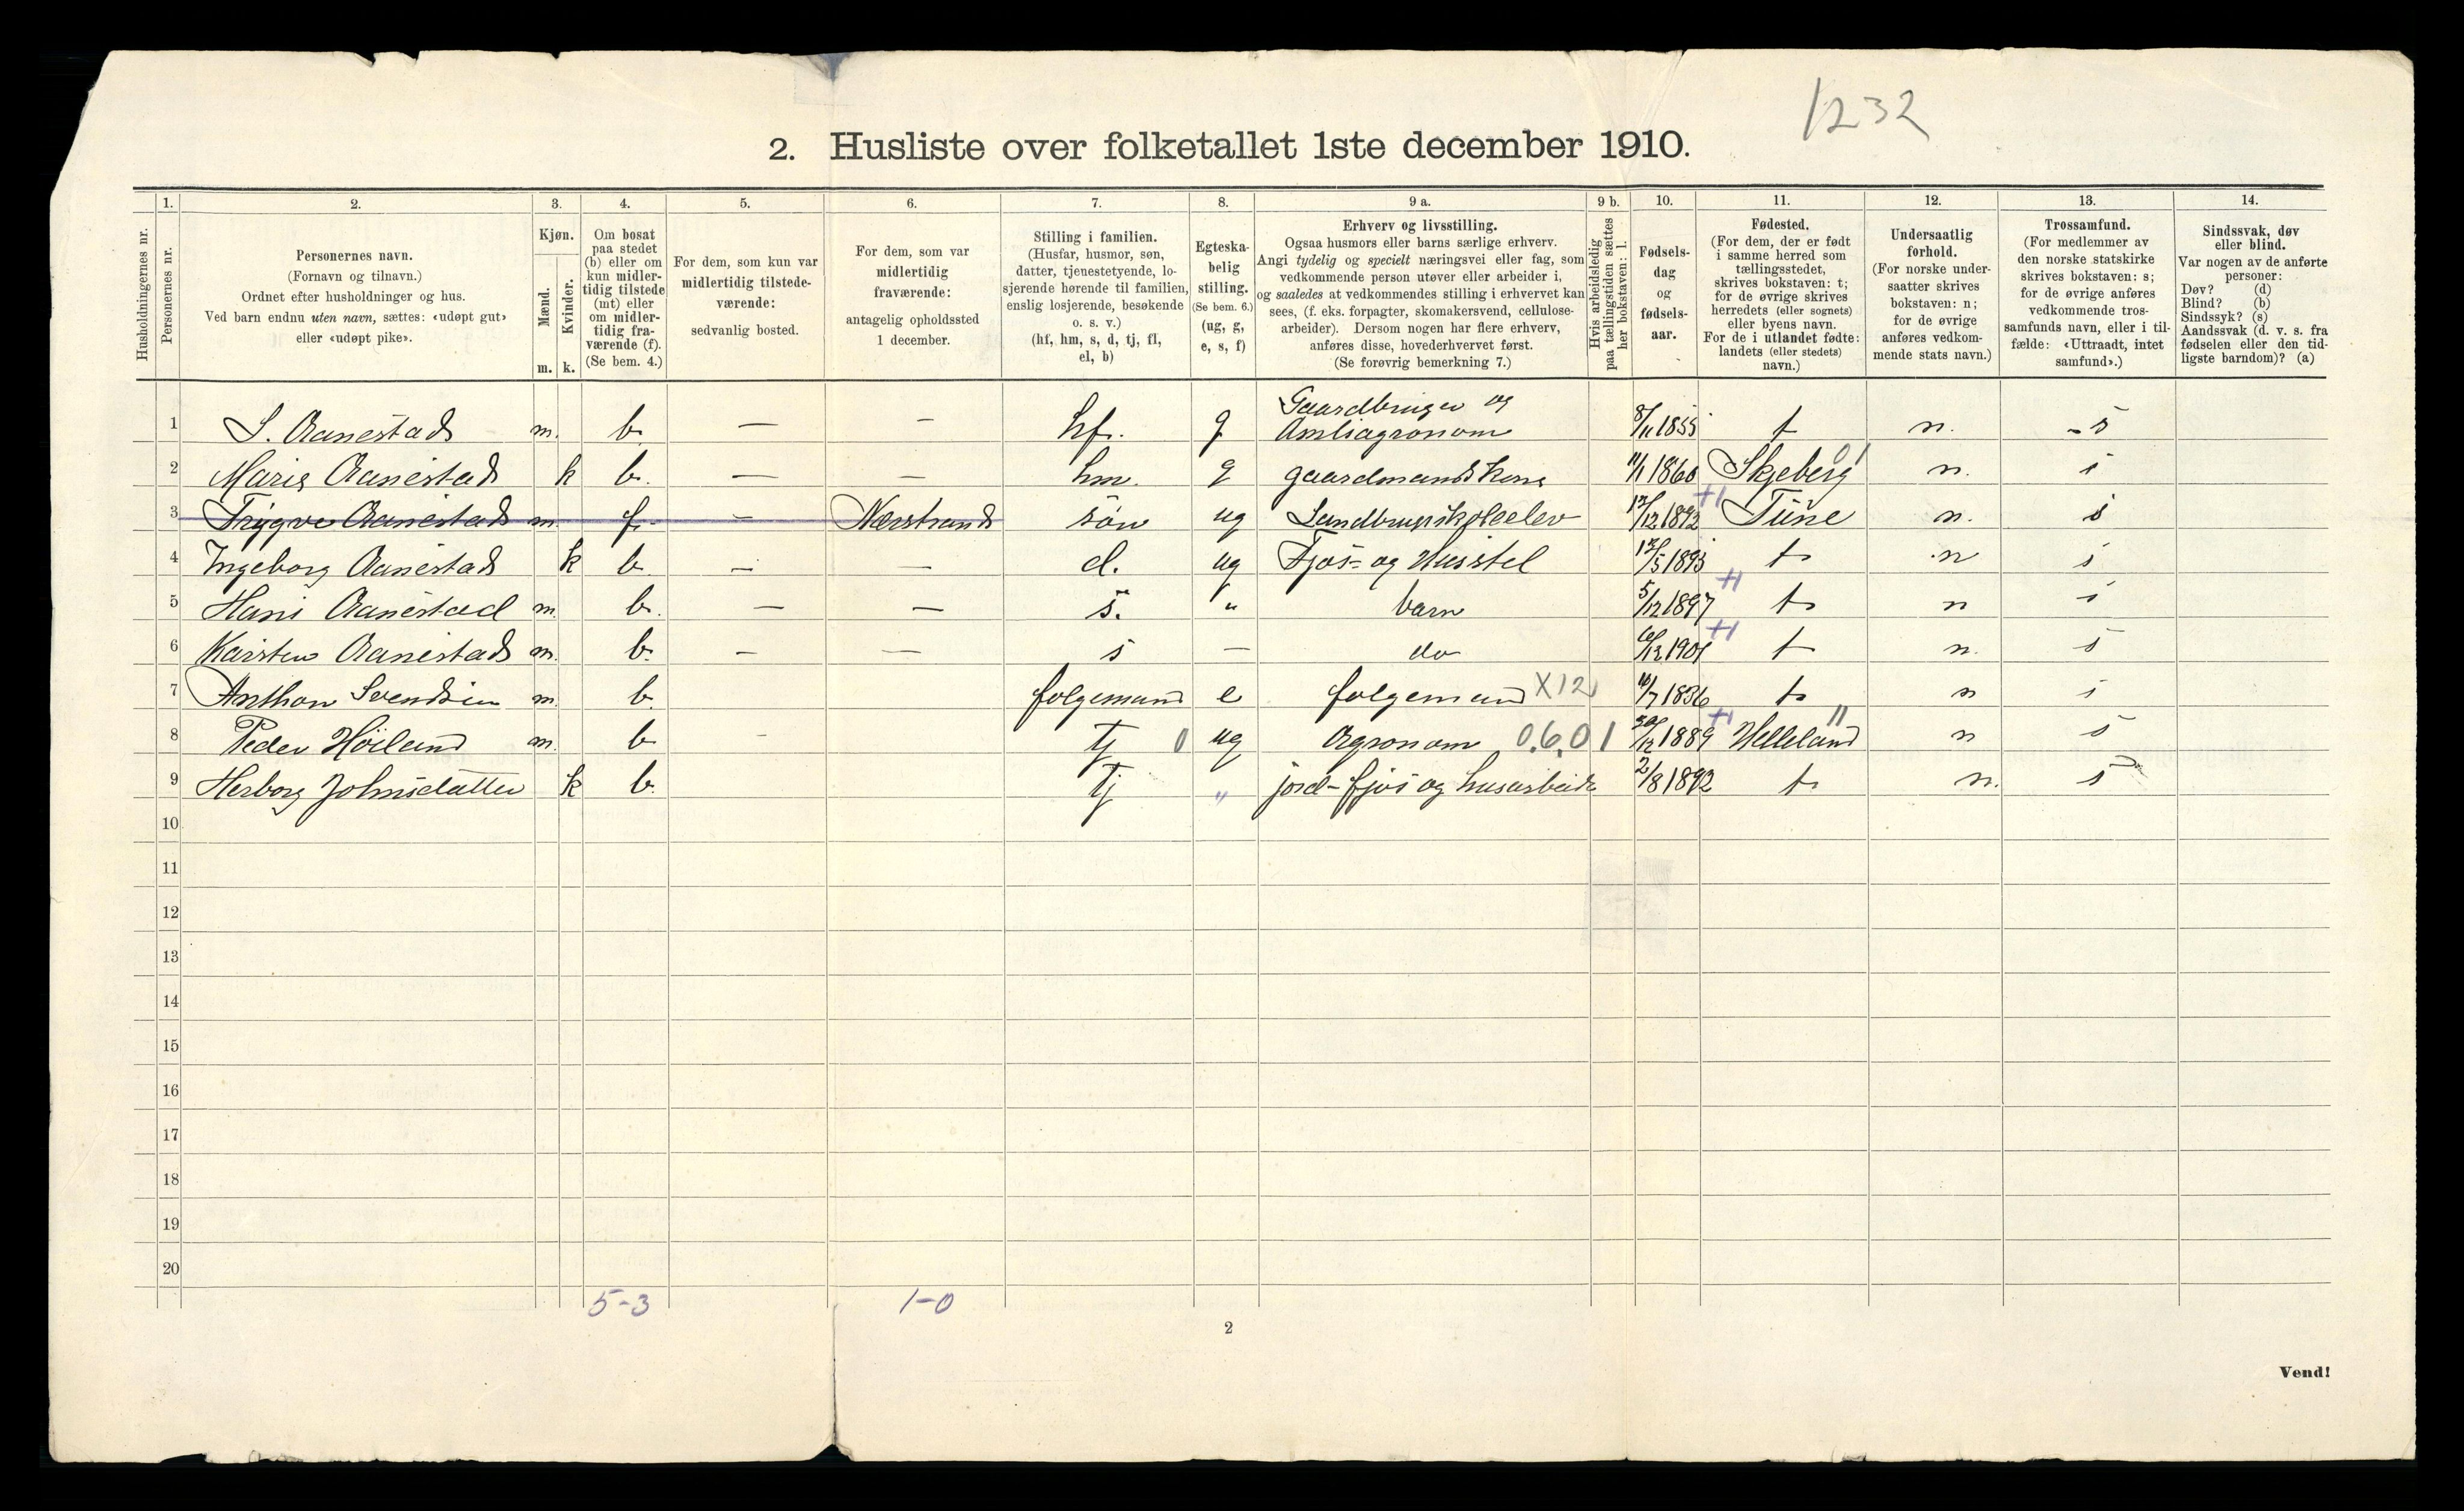 1232
2. Husliste over folketallet 1ste december 1910.
1. 2. 3. 4. 5. 6. 7. 8. 9 a. 9 b. 10. 11. 12. 13. 14.
Husholdningernes nr.
Personernes nr.
Personernes navn.
(Fornavn og tilnavn.)
Ordnet efter husholdninger og hus.
Ved barn endnu uten navn, sættes: «udøpt gut»
eller «udøpt pike».
Kjøn.
Mænd.
Kvinder.
m. k.
Om bosat
paa stedet
(b) eller om
kun midler-
tidig tilstede
(mt) eller
om midler-
tidig fra-
værende (f).
(Se bem. 4.)
For dem, som kun var
midlertidig tilstede-
værende:
sedvanlig bosted.
For dem, som var
midlertidig
fraværende:
antagelig opholdssted
1 december.
Stilling i familien.
(Husfar, husmor, søn,
datter, tjenestetyende, lo-
sjerende hørende til familien,
enslig losjerende, besøkende
o. s. v.)
(hf, hm, s, d, tj, fl,
el, b)
Egteska-
belig
stilling.
(Se bem. 6.)
(ug, g,
e, s, f)
Erhverv og livsstilling.
Ogsaa husmors eller barns særlige erhverv.
Angi tydelig og specielt næringsvei eller fag, som
vedkommende person utøver eller arbeider i,
og saaledes at vedkommendes stilling i erhvervet kan
sees, (f. eks. forpagter, skomakersvend, cellulose-
arbeider). Dersom nogen har flere erhverv,
anføres disse, hovederhvervet først.
(Se forøvrig bemerkning 7.)
Hvis arbeidsledig
paa tællingstiden sættes
her bokstaven: l.
Fødsels-
dag
og
fødsels-
aar.
Fødested.
(For dem, der er født
i samme herred som
tællingsstedet,
skrives bokstaven: t;
for de øvrige skrives
herredets (eller sognets)
eller byens navn.
For de i utlandet fødte:
landets (eller stedets)
navn.)
Undersaatlig
forhold.
(For norske under-
saatter skrives
bokstaven: n;
for de øvrige
anføres vedkom-
mende stats navn.)
Trossamfund.
(For medlemmer av
den norske statskirke
skrives bokstaven: s;
for de øvrige anføres
vedkommende tros-
samfunds navn, eller i til-
fælde: «Uttraadt, intet
samfund».)
Sindssvak, døv
eller blind.
Var nogen av de anførte
personer:
Døv? (d)
Blind? (b)
Sindssyk? (s)
Aandssvak (d. v. s. fra
fødselen eller den tid-
ligste barndom)? (a)
Gaardbruger og
1 S. Aanestad m. b. — — hf. g Amtsagronom 8/11 1855 t n. - s
2 Marie Aanestad k b. — — hm. g gaardmandskone 11/1 1860 Skjeberg n. s
3 Trygve Aanestad m. f. — Nærstrand søn ug Landbrugsskoleelev 17/12 1892 Tune n. s
4 Ingeborg Aanestad k b — — d. ug Fjøs- og Husstel 17/5 1895 t n s
5 Hans Aanestad m. b. — — s. " barn 5/12 1897 t n s
6 Karsten Aanestad m. b. — — s — do 6/12 1901 t n. s
7 Anthon Svendsen m. b. folgemand e folgemand X12 1836 t n s
8 Peder Höiland m. b - tj 0 ug Agronom 0.6.01 30/12 1889 Helleland n s
9 Herborg Johnsdatter k b. tj " jord- fjøs og husarbeide 2/8 1892 t n. s
10
11
12
13
14
15
16
17
18
19
20
5-3 1-0
2
Vend!